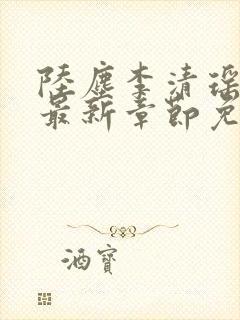 陸塵李清瑶
最新章節免
酒寶